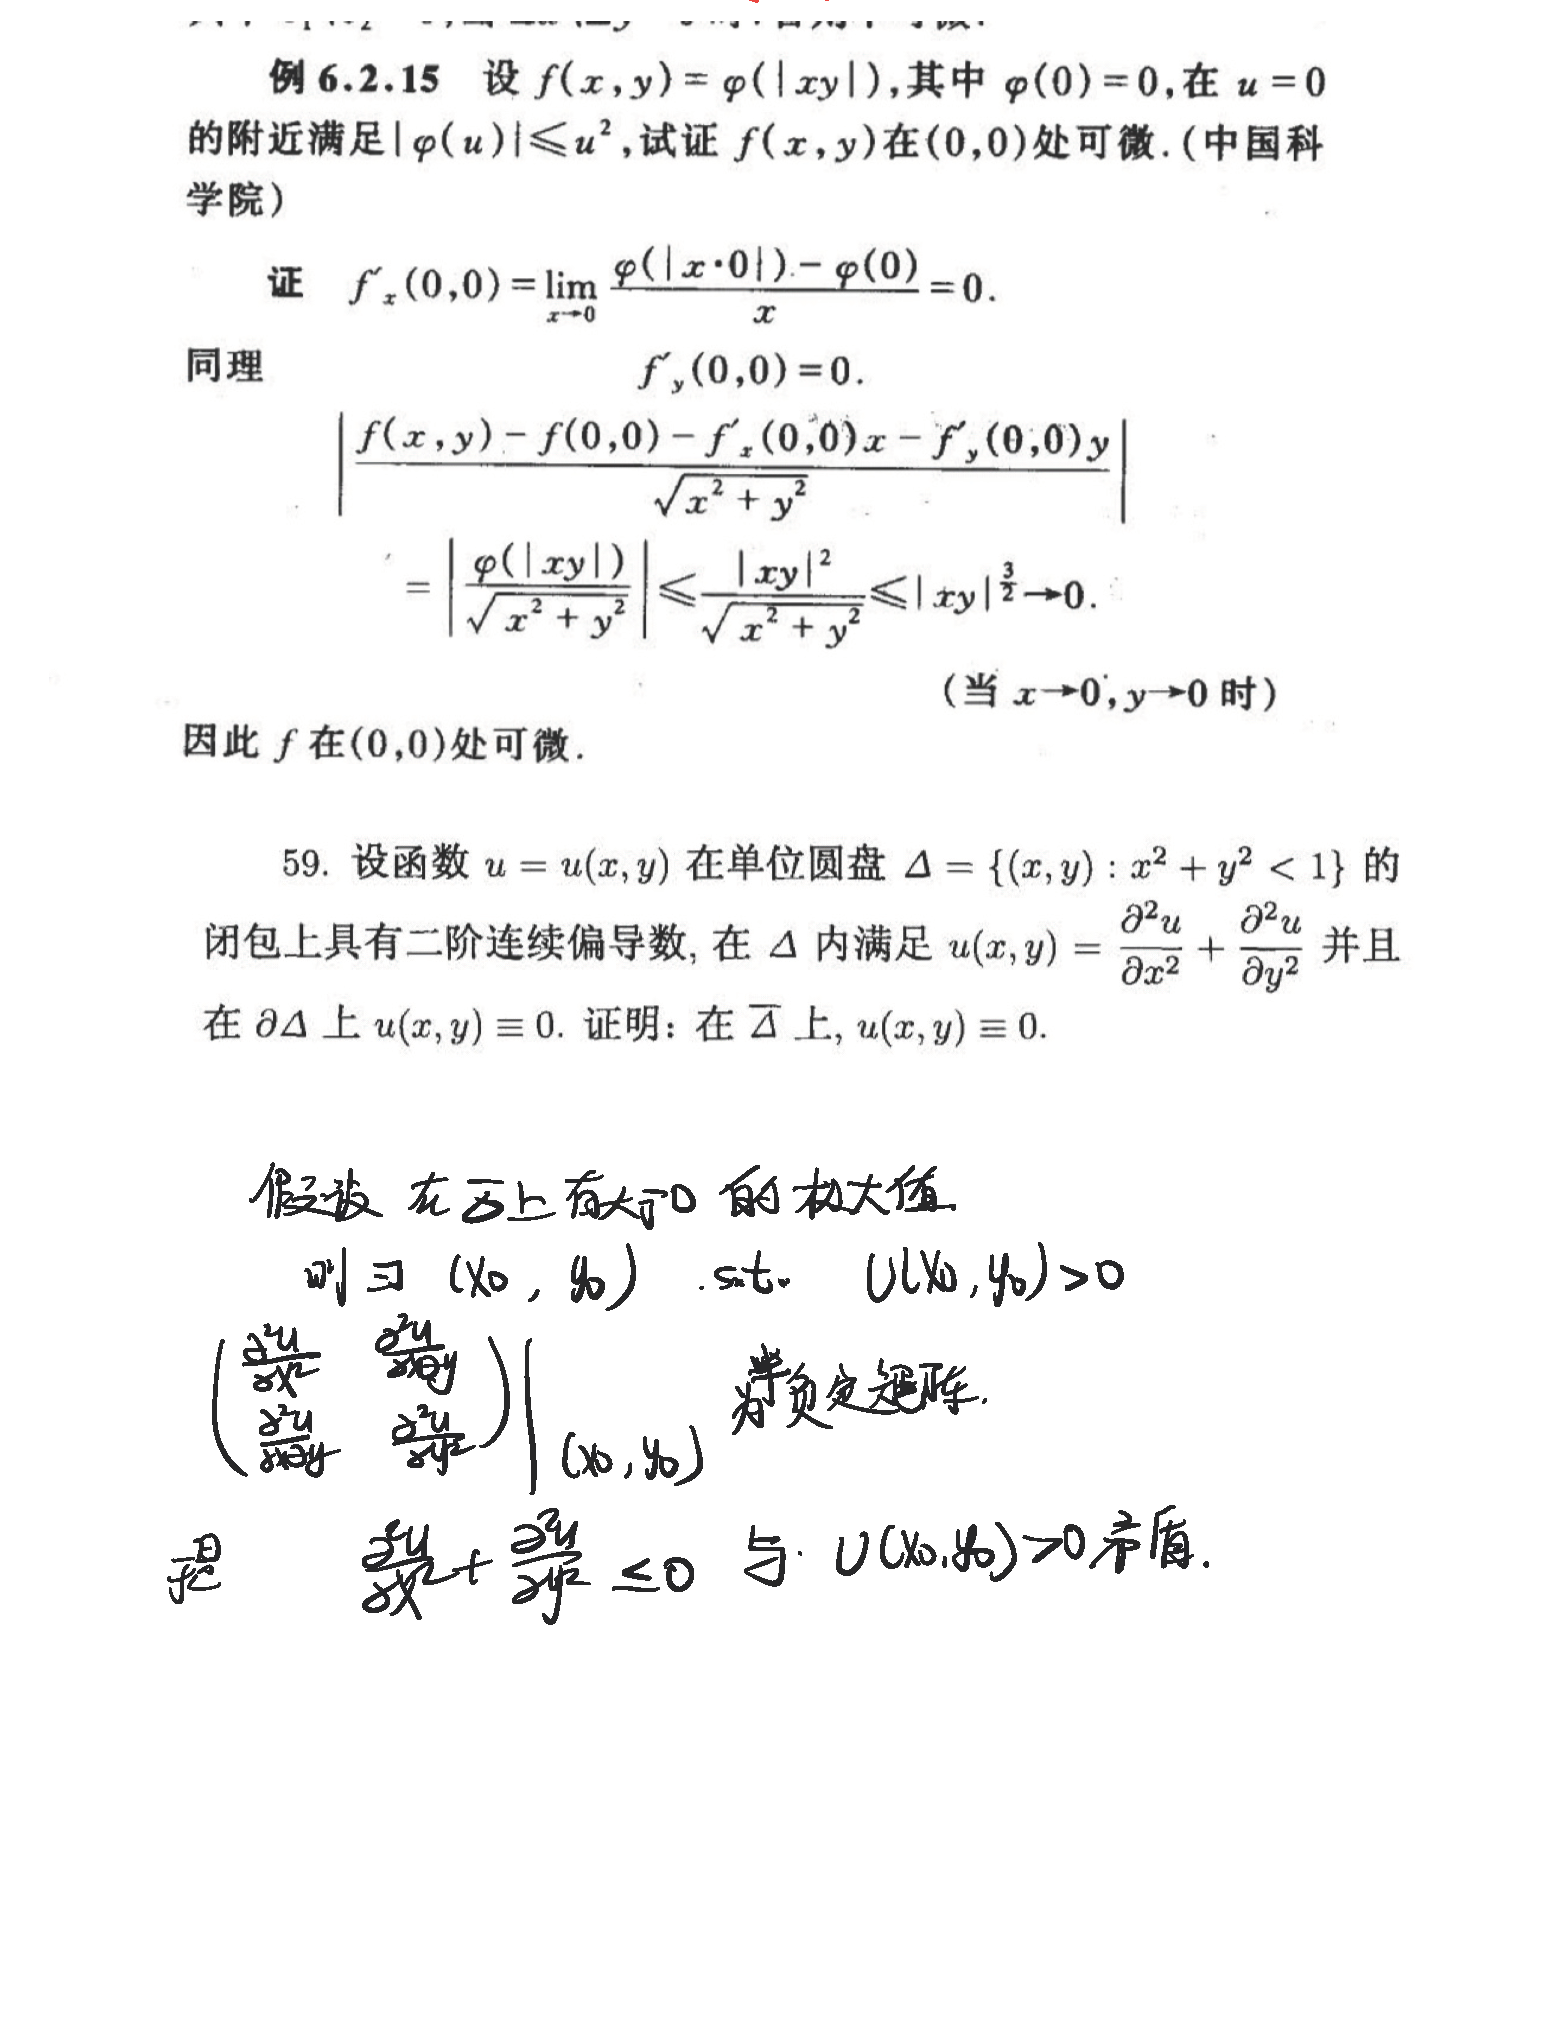 例 6.2.15 设 f(x,y)=φ(|xy|),其中 φ(0)=0,在 u=0
的附近满足|φ(u)|≤u²,试证 f(x,y)在(0,0)处可微.(中国科
学院)
证 f′ₓ(0,0)=lim_{x→0} (φ(|x·0|)-φ(0))/x=0.
同理 f′_y(0,0)=0.
|(f(x,y)-f(0,0)-f′ₓ(0,0)x-f′_y(0,0)y)/√(x²+y²)|
=|φ(|xy|)/√(x²+y²)|≤|xy|²/√(x²+y²)≤|xy|^{3/2}→0.
(当 x→0,y→0 时)
因此 f 在(0,0)处可微.
59. 设函数 u = u(x,y) 在单位圆盘 Δ = {(x,y) : x² + y² < 1} 的
闭包上具有二阶连续偏导数, 在 Δ 内满足 u(x,y) = ∂²u/∂x² + ∂²u/∂y² 并且
在 ∂Δ 上 u(x,y) ≡ 0. 证明: 在 Δ̅ 上, u(x,y) ≡ 0.
假设 在 Δ̅ 上有大于0 的极大值
则 ∃ (x₀, y₀) s.t. u(x₀,y₀)>0
(∂²u/∂x² ∂²u/∂x∂y
∂²u/∂x∂y ∂²u/∂y²)|(x₀,y₀) 为半负定矩阵.
∂²u/∂x² + ∂²u/∂y² ≤0 与 u(x₀,y₀)>0 矛盾.